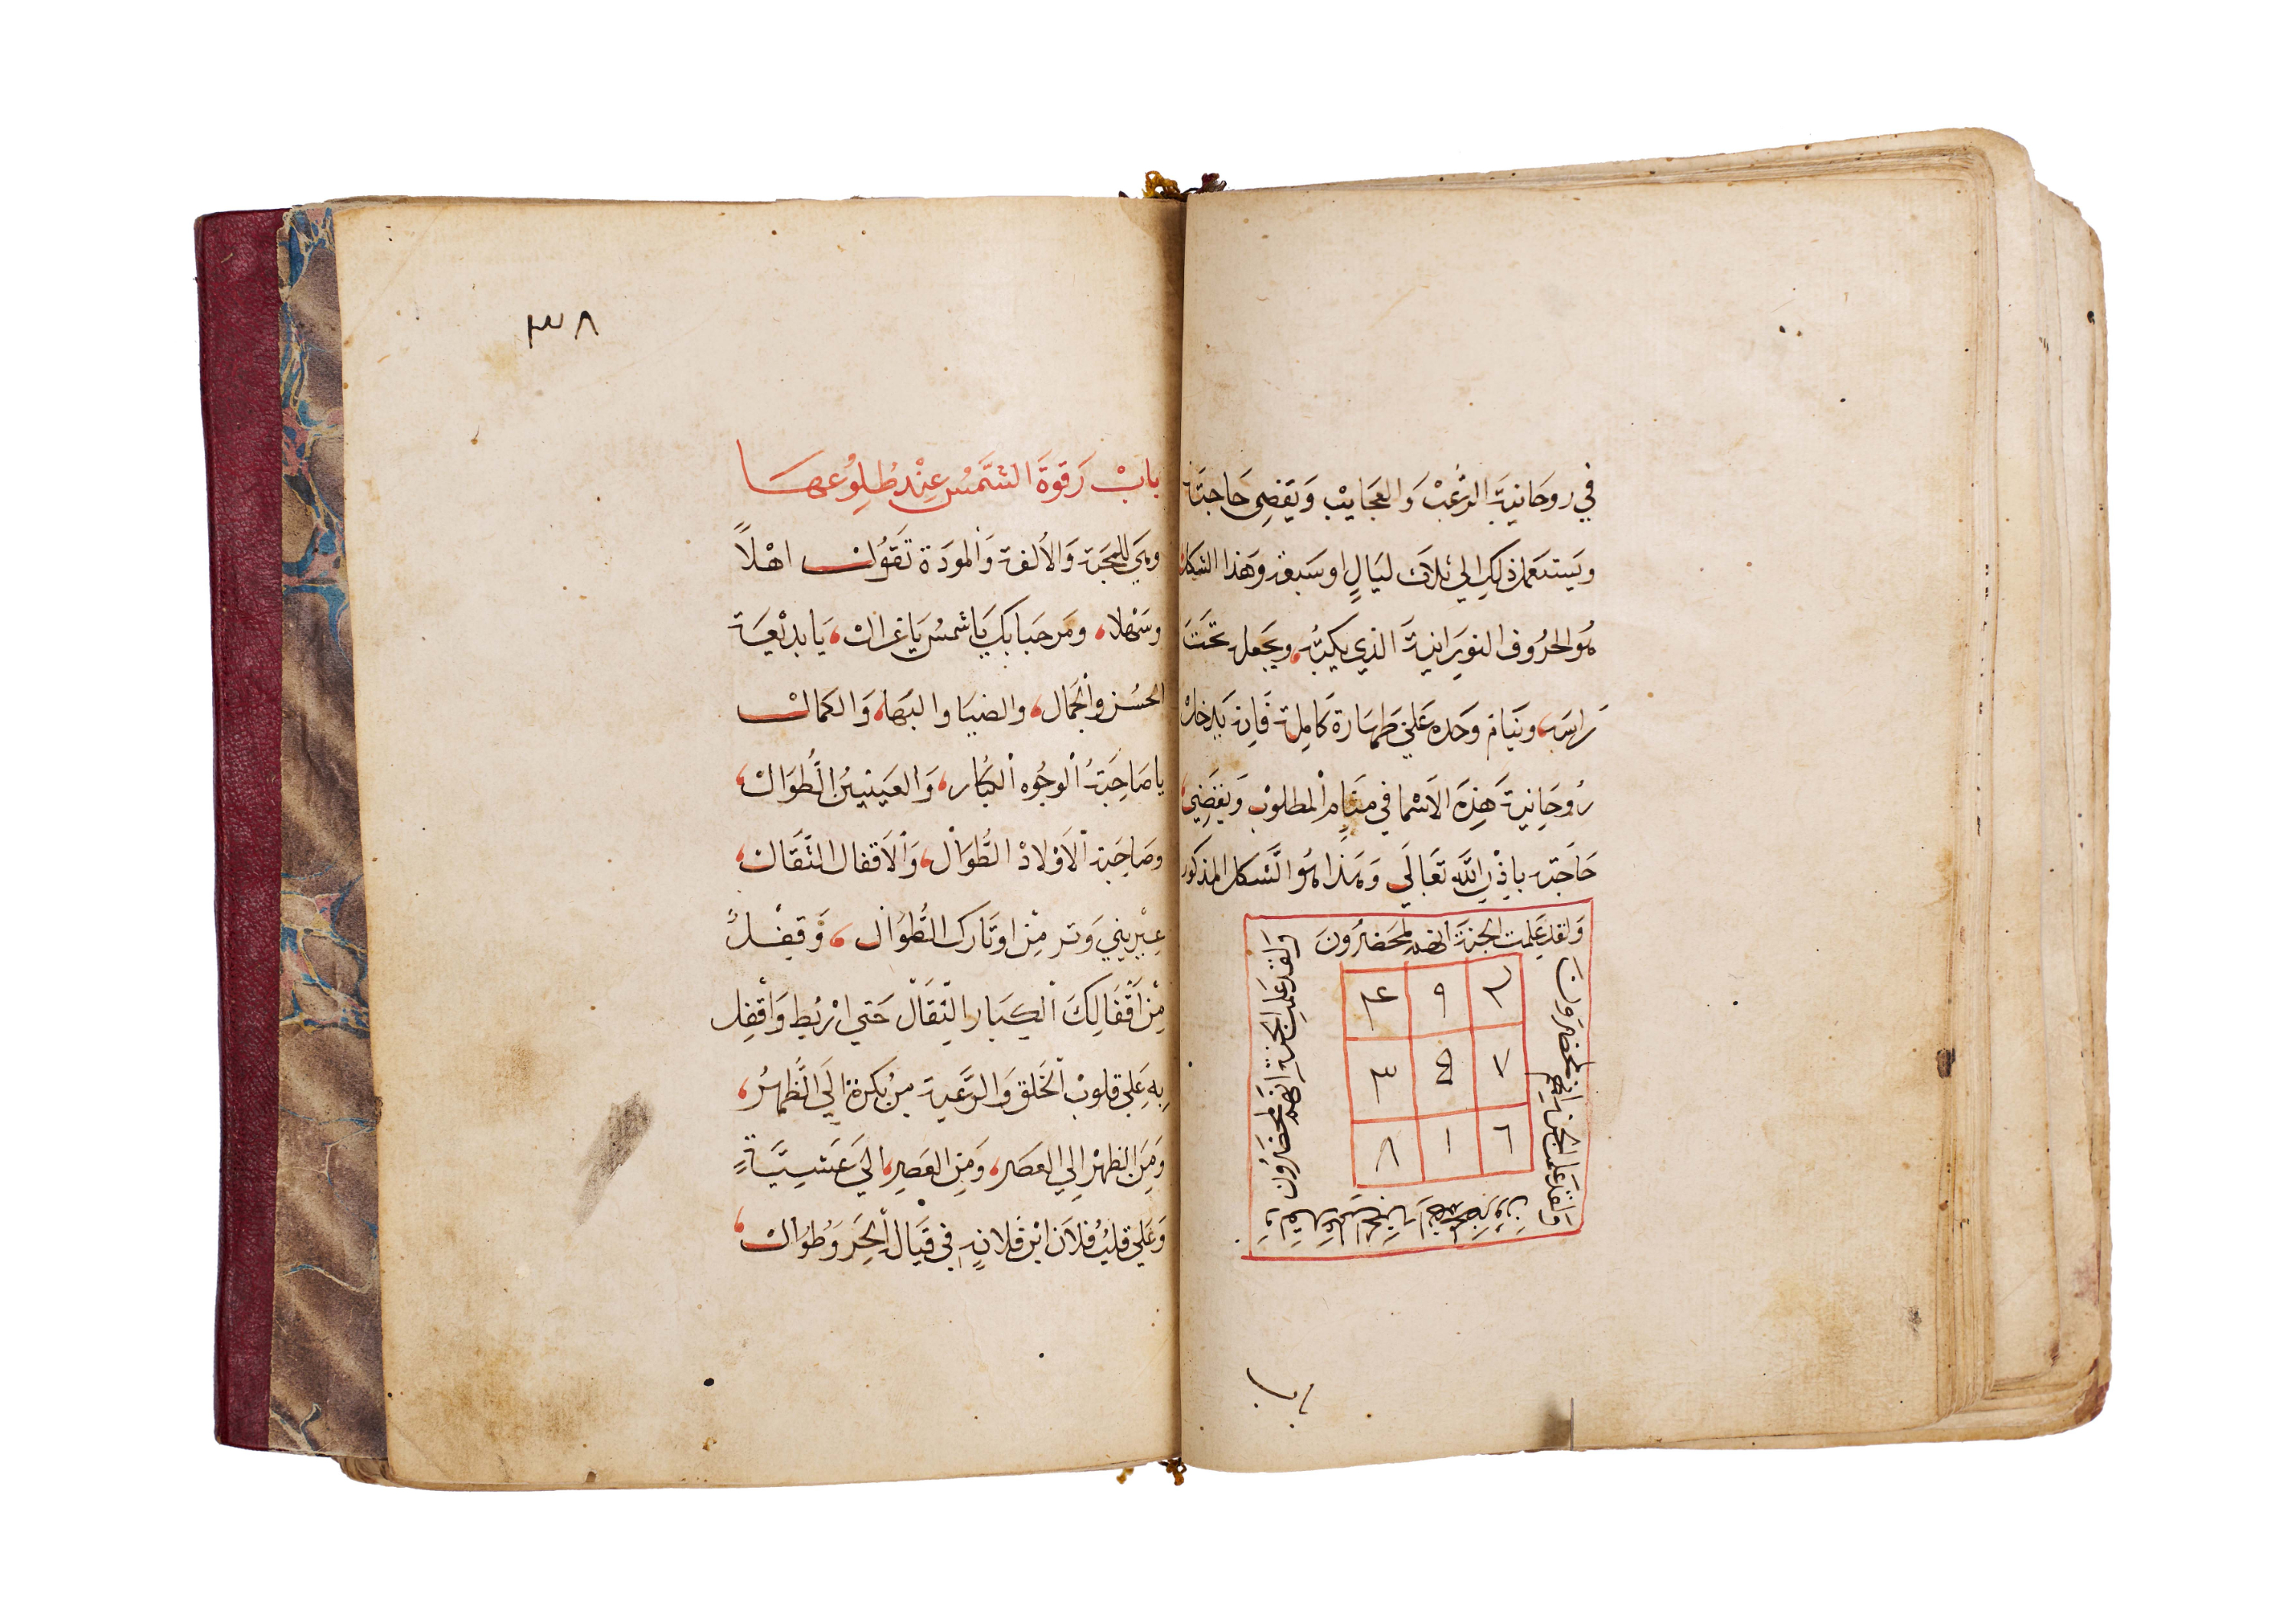 في روحانية الرغب والعجايب ويقضي حاجته
ويستعمل ذلك الي ثلاث ليال او سبعة وهذا الشكل
هو الحروف النورانية الذي يكتب، ويجعل تحت
راسه، وينام وحده علي طهارة كاملة فانه يدخل
روحانية هذه الاسما في منام المطلوب ويقضي،
حاجته باذن الله تعالي وهذا هو الشكل المذكور
ولقد علمت الجنة انهم لمحضرون
ولقد علمت الجنة انهم لمحضرون
ولقد علمت الجنة انهم لمحضرون
ولقد علمت الجنة انهم لمحضرون
٢ ٩ ٤
٧ ٥ ٣
٦ ١ ٨
باب
٣٨
باب رقوة الشمس عند طلوعها
وهي للمحبة والألفة والمودة تقول اهلاً
وسهلا، ومرحبا بك يا شمس يا غزال، يا بديعة
الحسن والجمال، والضيا والبها، والكمال
يا صاحبة الوجوه الكبار، والعينين الطوال،
وصاحبة الأولاد الطوال، والأقفال الثقال،
عيريني وتر من اوتارك الطوال، وقفلً
من أقفالك الكبار الثقال حتي اربط وأقفل
به علي قلوب الخلق والرعية من بكرة الي الظهر،
ومن الظهر الي العصر، ومن العصر، الي عشيةٍ
وعلي قلب فلان ابن فلانه في قبال الحر وطوال،